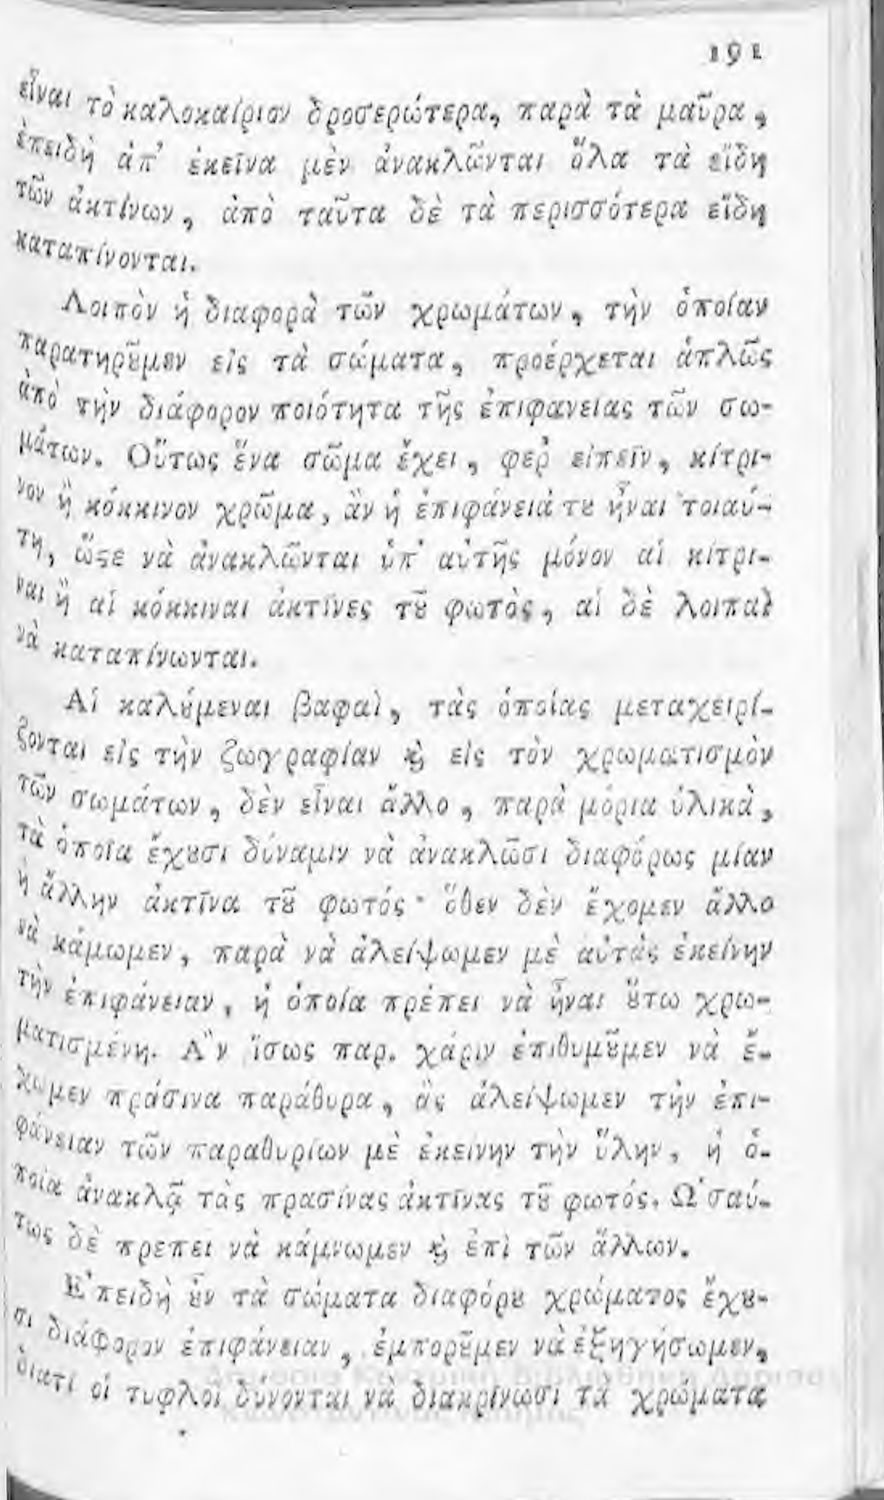 191
εἶναι τὸ καλοκαίριον δροσερώτερα, παρὰ τὰ μαῦρα,
ἐπειδὴ ἀπ' ἐκεῖνα μὲν ἀνακλῶνται ὅλα τὰ εἴδη
τῶν ἀκτίνων, ἀπὸ ταῦτα δὲ τὰ περισσότερα εἴδη
καταπίνονται.
Λοιπὸν ἡ διαφορὰ τῶν χρωμάτων, τὴν ὁποίαν
παρατηρȣ͂μεν εἰς τὰ σώματα, προέρχεται ἁπλῶς
ἀπὸ τὴν διάφορον ποιότητα τῆς ἐπιφανειας τῶν σω-
μάτων. Οὕτως ἕνα σῶμα ἔχει, φερ' εἰπεῖν, κίτρι-
νον ἢ κόκκινον χρῶμα, ἂν ἡ ἐπιφάνειά τȣ ἦναι τοιαύ-
τη, ὥϛε νὰ ἀνακλῶνται ὑπ' αὐτῆς μόνον αἱ κίτρι-
ναι ἢ αἱ κόκκιναι ἀκτῖνες τȣ͂ φωτὸς, αἱ δὲ λοιπαὶ
νὰ καταπίνωνται.
Αἱ καλȣ́μεναι βαφαὶ, τὰς ὁποίας μεταχειρί-
ζονται εἰς τὴν ζωγραφίαν ϗ εἰς τὸν χρωματισμὸν
τῶν σωμάτων, δὲν εἶναι ἄλλο, παρὰ μόρια ὑλικὰ,
τὰ ὁποῖα ἔχȣσι δύναμιν νὰ ἀνακλῶσι διαφόρως μίαν
ἢ ἄλλην ἀκτῖνα τȣ͂ φωτός· ὅθεν δὲν ἔχομεν ἄλλο
νὰ κάμωμεν, παρὰ νὰ ἀλείψωμεν μὲ αὐτὰς ἐκείνην
τὴν ἐπιφάνειαν, ἡ ὁποία πρέπει νὰ ἦναι ȣ̔́τω χρω-
ματισμένη. Α῍ν ἴσως παρ. χάριν ἐπιθυμȣ͂μεν νὰ ἔ-
χωμεν πράσινα παράθυρα, ἂς ἀλείψωμεν τὴν ἐπι-
φάνειαν τῶν παραθυρίων μὲ ἐκείνην τὴν ὕλην, ἡ ὁ-
ποία ἀνακλᾷ τὰς πρασίνας ἀκτῖνας τȣ͂ φωτός. Ω῾σαύ-
τως δὲ πρεπει νὰ κάμνωμεν ϗ ἐπὶ τῶν ἄλλων.
Ε᾿πειδὴ ȣ̓͂ν τὰ σώματα διαφόρȣ χρώματος ἔχȣ-
σι διάφορον ἐπιφάνειαν, ἐμπορȣ͂μεν νὰ ἐξηγήσωμεν,
διατί οἱ τυφλοὶ δύνονται νὰ διακρίνωσι τὰ χρώματα